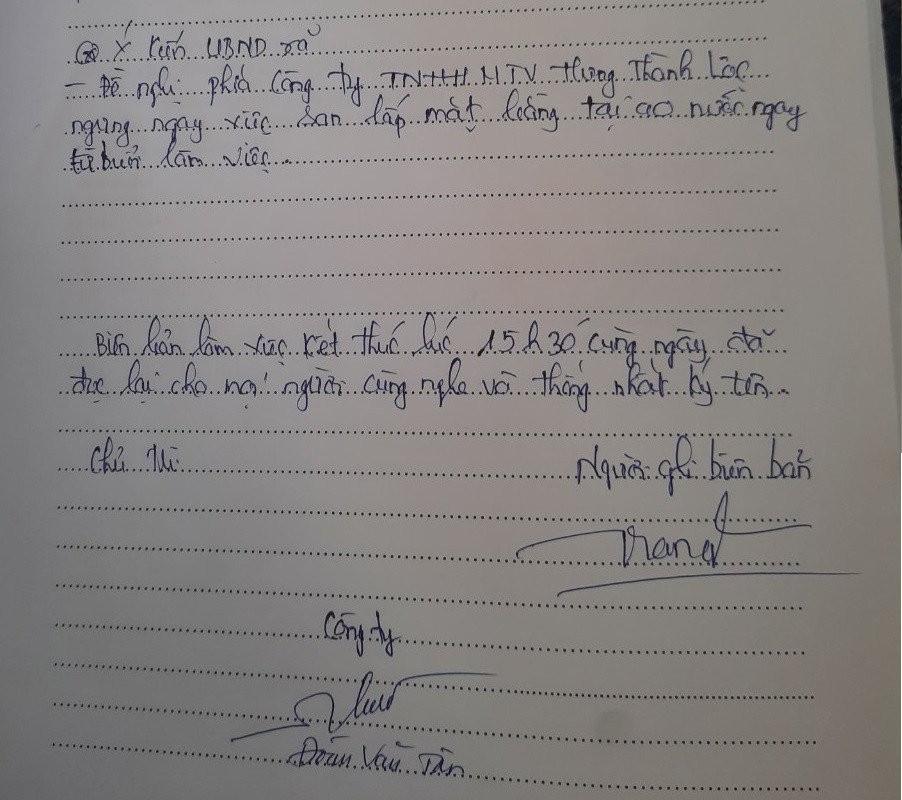 Ý kiến UBND xã
- Đề nghị phía Công ty TNHH MTV Hưng Thành Lộc
ngưng ngay việc san lấp mặt bằng tại ao nước ngay
từ buổi làm việc.
Biên bản làm việc kết thúc lúc 15h30' cùng ngày, đã
đọc lại cho mọi người cùng nghe và thống nhất ký tên.
Chủ trì
Người ghi biên bản
Công ty
Đoàn Văn Tân